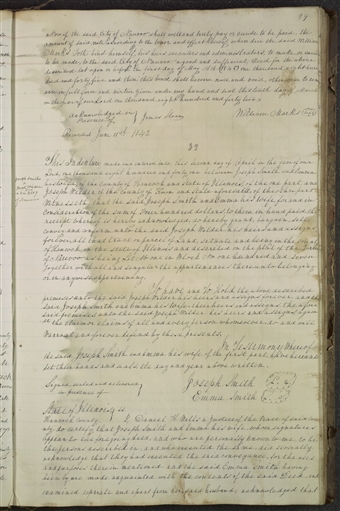 29
of the said City of Nauvoo shall well and truly pay or cause to be paid the
amount of said note according to the tenor and effect thereof, when due the said William
Marks doth bind himself, his heirs executors and administrators to make or cause
to be made, to the said City of Nauvoo a good and sufficient Deed for the above
described lot upon or before the first day of May A.D. One thousand eight hun-
dred and forty five, and then this bond shall become null and void, otherwise to re-
main in full force and virtue Given under my hand and seal this tenth day of March
in the year of our Lord one thousand eight hundred and forty two.
acknowledged in
presence of James Sloan
William Marks
Recorded June 11th 1842
32
This Indenture made and entered into this day of April in the year of our
Lord one thousand eight hundred and forty between Joseph Smith and Emma
his wife of the County of Hancock and State of Illinois, of the one part and
Joseph of the County of and State aforesaid of the other part
Witnesseth, that the said Joseph Smith and Emma his wife, for and in
Consideration of the sum of hundred dollars to them in hand paid the
receipt whereof is hereby acknowledged, do hereby grant, bargain, sell
convey and confirm unto the said Joseph his heirs and assigns
forever, all that tract or parcel of land, situate and being in the County
of Hancock in the State of Illinois and described on the plat of the
of Nauvoo as being Lot in Block one hundred and
Together with all and singular the appurtenances thereunto belonging
or in anywise appertaining.
To have and to Hold the above described
premises unto the said Joseph his heirs and assigns forever and the
said Joseph Smith and Emma his wife
said premises unto the said Joseph his heirs and assigns against
the claim or claims of all and every person whomsoever do and will
Warrant and forever defend by these presents.
In Testimony Whereof
the said Joseph Smith and Emma his wife of the first part have hereunto
set their hands and seals the day and year above written.
Signed, sealed and delivered
in presence of
Joseph Smith
Emma Smith
State of Illinois
Hancock County I Daniel H Wells a Justice of the Peace of said County
do certify that Joseph Smith and Emma his wife, whose signatures
appear to the foregoing deed, and who are personally known to me to be
the persons described in, and who executed the same, did severally
acknowledge that they had executed the said conveyance for the uses
and purposes therein mentioned and the said Emma Smith having
been by me made acquainted with the contents of the said Deed and
examined separate and apart from her said husband, acknowledged that